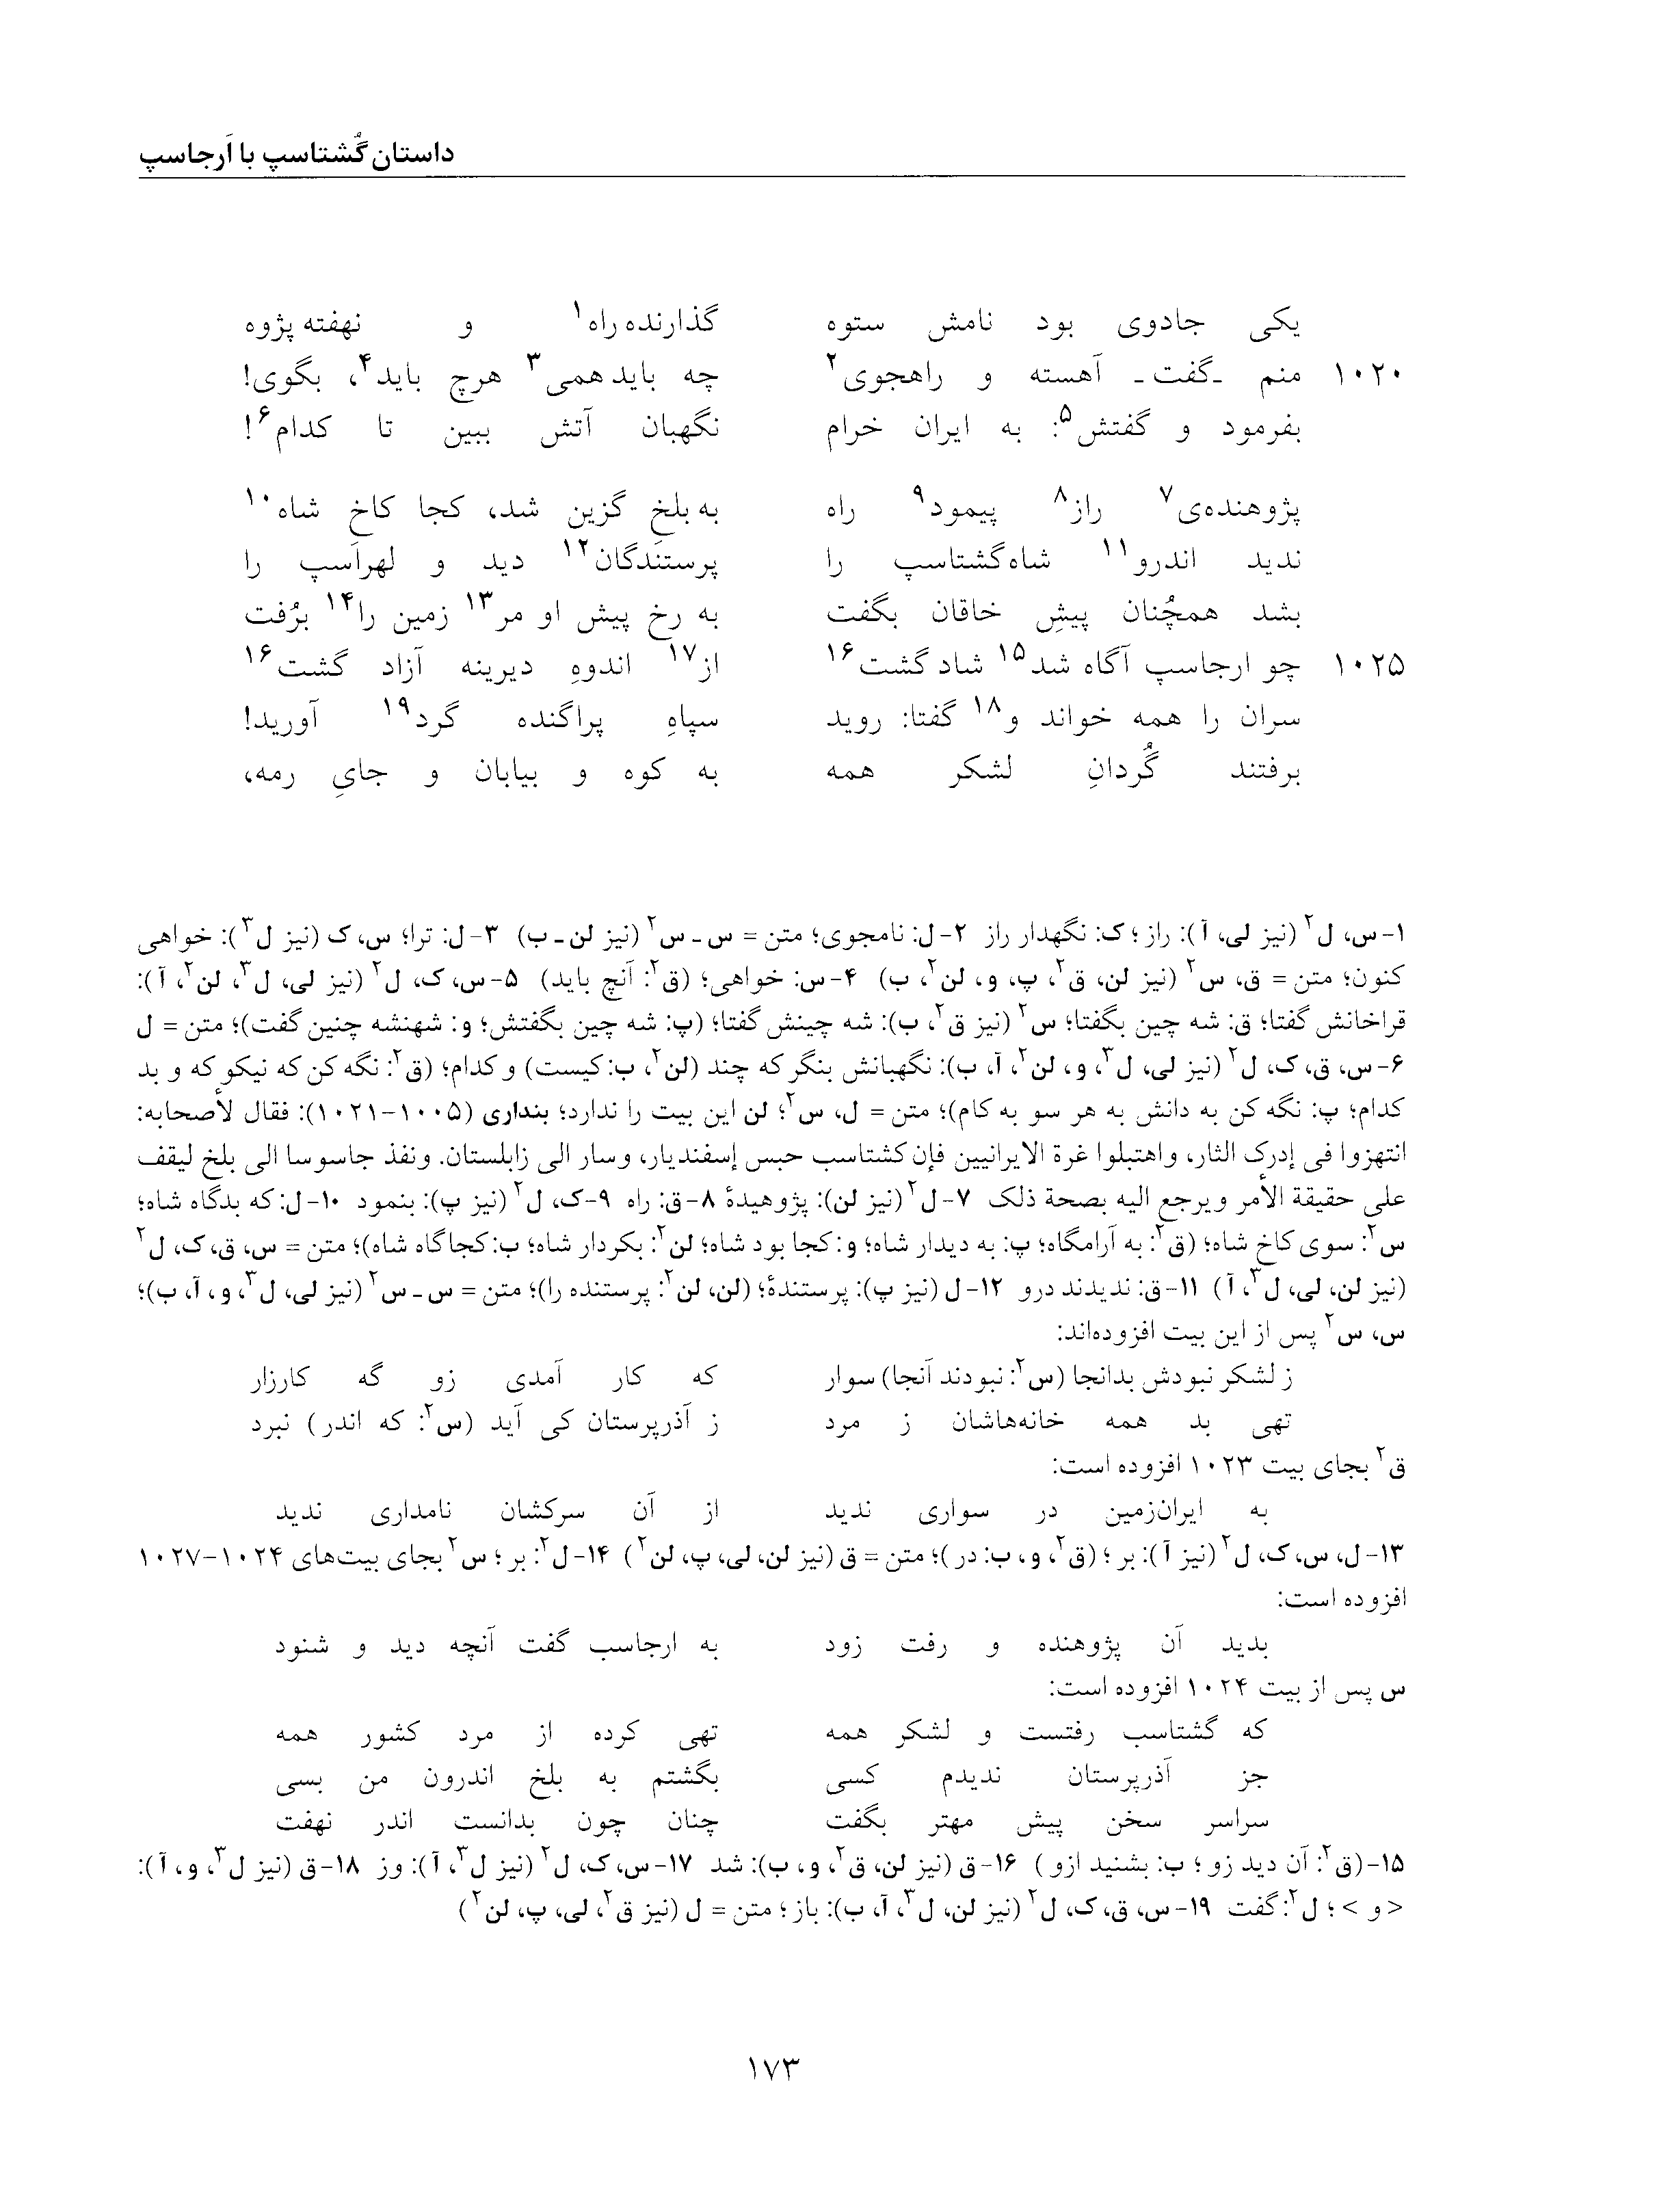 داستان گُشتاسپ با اَرجاسپ
یکی جادوی بود نامش ستوه گذارنده راه۱ و نهفته پژوه
۱۰۲۰ منم ـ گفت ـ آهسته و راهجوی۲ چه باید همی۳ هرچ باید۴، بگوی!
بفرمود و گفتش۵: به ایران خرام نگهبان آتش ببین تا کدام۶!
پژوهنده‌ی۷ راز۸ پیمود۹ راه به بلخِ گزین شد، کجا کاخِ شاه۱۰
ندید اندرو۱۱ شاه گشتاسپ را پرستَندگان۱۲ دید و لهراَسپ را
بشد همچُنان پیشِ خاقان بگفت به رخ پیش او مر۱۳ زمین را۱۴ برُفت
۱۰۲۵ چو ارجاسپ آگاه شد۱۵ شاد گشت۱۶ از۱۷ اندوهِ دیرینه آزاد گشت۱۶
سران را همه خواند و۱۸ گفتا: روید سپاهِ پراگنده گرد۱۹ آورید!
برفتند گُردانِ لشکر همه به کوه و بیابان و جایِ رمه،
۱- س، ل۲ (نیز لی، آ): راز؛ ک: نگهدار راز ۲- ل: نامجوی؛ متن = س ـ س۲ (نیز لن ـ ب) ۳- ل: ترا؛ س، ک (نیز ل۳): خواهی
کنون؛ متن = ق، س۲ (نیز لن، ق۲، پ، و، لن۲، ب) ۴- س: خواهی؛ (ق۲: آنچ باید) ۵- س، ک، ل۲ (نیز لی، ل۳، لن۲، آ):
قراخانش گفتا؛ ق: شه چین بگفتا؛ س۲ (نیز ق۲، ب): شه چینش گفتا؛ (پ: شه چین بگفتش؛ و: شهنشه چنین گفت)؛ متن = ل
۶- س، ق، ک، ل۲ (نیز لی، ل۳، و، لن۲، آ، ب): نگهبانش بنگر که چند (لن۲، ب: کیست) و کدام؛ (ق۲: نگه کن که نیکو که و بد
کدام؛ پ: نگه کن به دانش به هر سو به کام)؛ متن = ل، س۲؛ لن این بیت را ندارد؛ بنداری (۱۰۰۵-۱۰۲۱): فقال لأصحابه:
انتهزوا فی إدرک الثار، واهتبلوا غرة الایرانیین فإن کشتاسب حبس إسفندیار، وسار الی زابلستان. ونفذ جاسوسا الی بلخ لیقف
علی حقیقة الأمر ویرجع الیه بصحة ذلک ۷- ل۲ (نیز لن): پژوهیدهٔ ۸- ق: راه ۹- ک، ل۲ (نیز پ): بنمود ۱۰- ل: که بدگاه شاه؛
س۲: سوی کاخ شاه؛ (ق۲: به آرامگاه؛ پ: به دیدار شاه؛ و: کجا بود شاه؛ لن۲: بکردار شاه؛ ب: کجاگاه شاه)؛ متن = س، ق، ک، ل۲
(نیز لن، لی، ل۳، آ) ۱۱- ق: ندیدند درو ۱۲- ل (نیز پ): پرستندهٔ؛ (لن، لن۲: پرستنده را)؛ متن = س ـ س۲ (نیز لی، ل۳، و، آ، ب)؛
س، س۲ پس از این بیت افزوده‌اند:
ز لشکر نبودش بدانجا (س۲: نبودند آنجا) سوار که کار آمدی زو گه کارزار
تهی بد همه خانه‌هاشان ز مرد ز آذرپرستان کی آید (س۲: که اندر) نبرد
ق۲ بجای بیت ۱۰۲۳ افزوده است:
به ایران‌زمین در سواری ندید از آن سرکشان نامداری ندید
۱۳- ل، س، ک، ل۲ (نیز آ): بر؛ (ق۲، و، ب: در)؛ متن = ق (نیز لن، لی، پ، لن۲) ۱۴- ل۲: بر؛ س۲ بجای بیت‌های ۱۰۲۴-۱۰۲۷
افزوده است:
بدید آن پژوهنده و رفت زود به ارجاسب گفت آنچه دید و شنود
س پس از بیت ۱۰۲۴ افزوده است:
که گشتاسب رفتست و لشکر همه تهی کرده از مرد کشور همه
جز آذرپرستان ندیدم کسی بگشتم به بلخ اندرون من بسی
سراسر سخن پیش مهتر بگفت چنان چون بدانست اندر نهفت
۱۵- (ق۲: آن دید زو؛ ب: بشنید ازو) ۱۶- ق (نیز لن، ق۲، و، ب): شد ۱۷- س، ک، ل۲ (نیز ل۳، آ): وز ۱۸- ق (نیز ل۳، و، آ):
<و>؛ ل۲: گفت ۱۹- س، ق، ک، ل۲ (نیز لن، ل۳، آ، ب): باز؛ متن = ل (نیز ق۲، لی، پ، لن۲)
۱۷۳